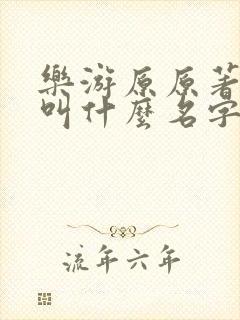 樂游原原著
叫什麼名字
流年六年